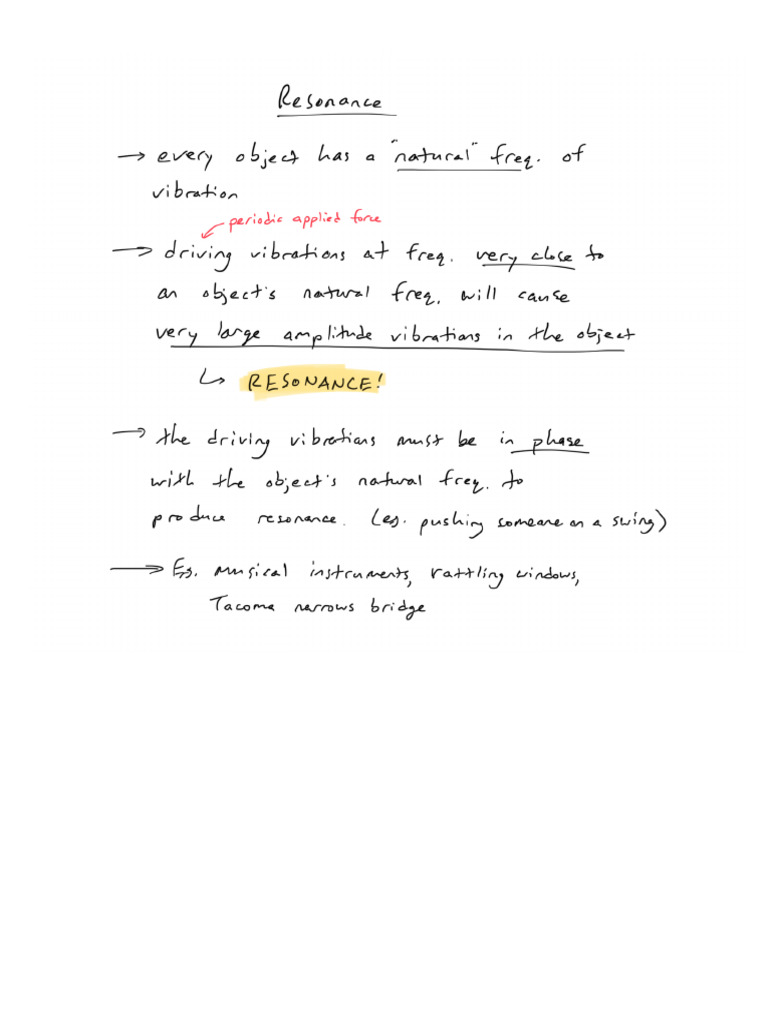 Resonance
→ every object has a "natural" freq. of
vibration
periodic applied force
→ driving vibrations at freq. very close to
an object's natural freq. will cause
very large amplitude vibrations in the object
↳ RESONANCE!
→ the driving vibrations must be in phase
with the object's natural freq. to
produce resonance. (eg. pushing someone on a swing)
→ Eg. musical instruments, rattling windows,
Tacoma narrows bridge